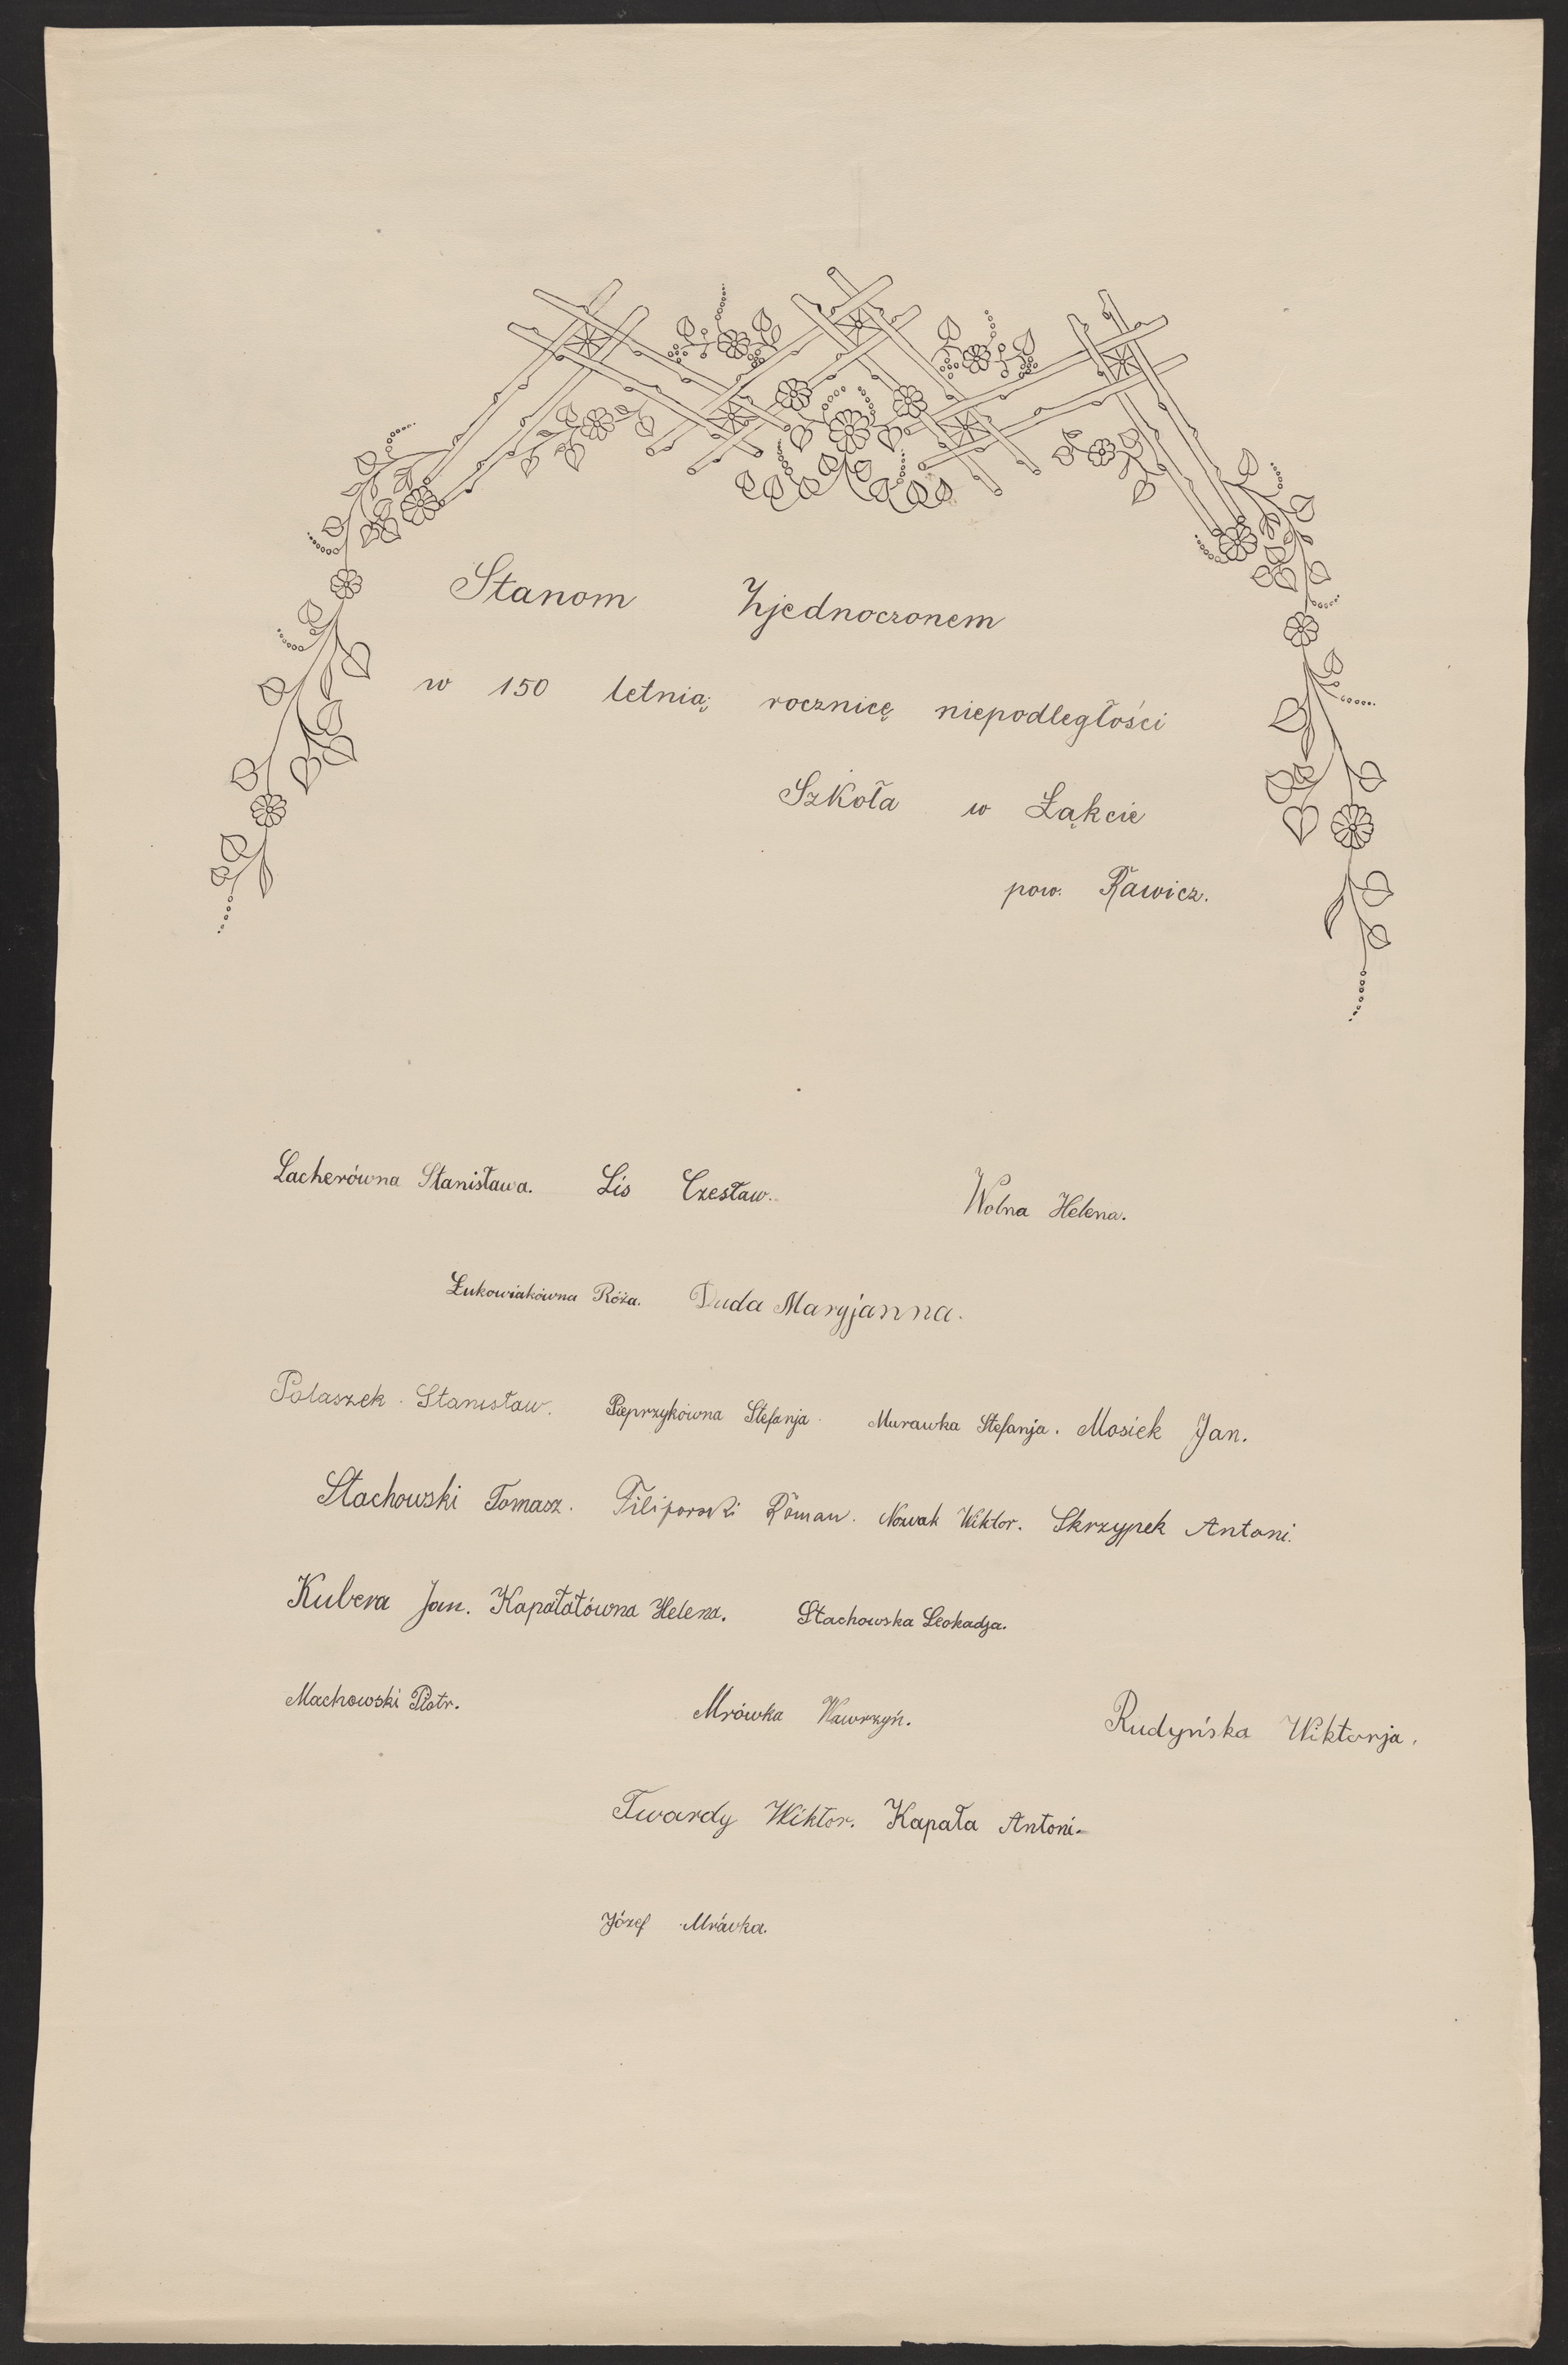 Stanom Zjednoczonem
w 150 letnią rocznicę niepodległości
Szkoła w Łąkcie
pow. Rawicz.
Lacherówna Stanisława. Lis Czesław. Wolna Helena.
Łukowiakówna Róża. Duda Maryjanna.
Polaszek Stanisław. Pieprzykówna Stefanja. Murawka Stefanja. Mosiek Jan.
Stachowski Tomasz. Filiporski Roman. Nowak Wiktor. Skrzypek Antoni.
Kubera Jan. Kapałatówna Helena. Stachowska Leokadja.
Machowski Piotr. Mrówka Wawrzyń. Rudyńska Wiktorja.
Twardy Wiktor. Kapała Antoni-
Józef Mrówka.